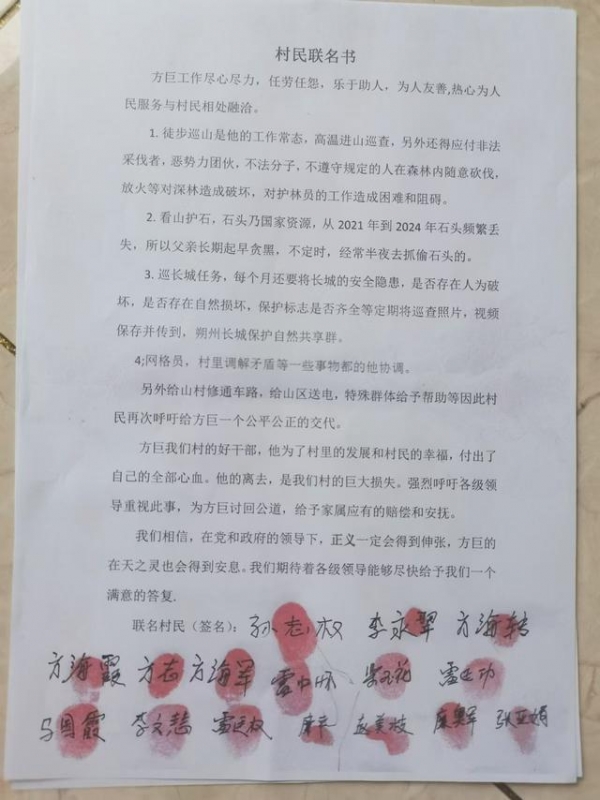 村民联名书
方巨工作尽心尽力，任劳任怨，乐于助人，为人友善,热心为人
民服务与村民相处融洽。
1. 徒步巡山是他的工作常态，高温进山巡查，另外还得应付非法
采伐者，恶势力团伙，不法分子，不遵守规定的人在森林内随意砍伐，
放火等对深林造成破坏，对护林员的工作造成困难和阻碍。
2. 看山护石，石头乃国家资源，从 2021 年到 2024 年石头频繁丢
失，所以父亲长期起早贪黑，不定时，经常半夜去抓偷石头的。
3. 巡长城任务，每个月还要将长城的安全隐患，是否存在人为破
坏，是否存在自然损坏，保护标志是否齐全等定期将巡查照片，视频
保存并传到，朔州长城保护自然共享群。
4;网格员，村里调解矛盾等一些事物都的他协调。
另外给山村修通车路，给山区送电，特殊群体给予帮助等因此村
民再次呼吁给方巨一个公平公正的交代。
方巨我们村的好干部，他为了村里的发展和村民的幸福，付出了
自己的全部心血。他的离去，是我们村的巨大损失。强烈呼吁各级领
导重视此事，为方巨讨回公道，给予家属应有的赔偿和安抚。
我们相信，在党和政府的领导下，正义一定会得到伸张，方巨的
在天之灵也会得到安息。我们期待着各级领导能够尽快给予我们一个
满意的答复.
联名村民（签名）：孙志权 李永翠 方海转
方海霞 方志 方海军
马国霞 李文慧 雷廷权 张亚娟